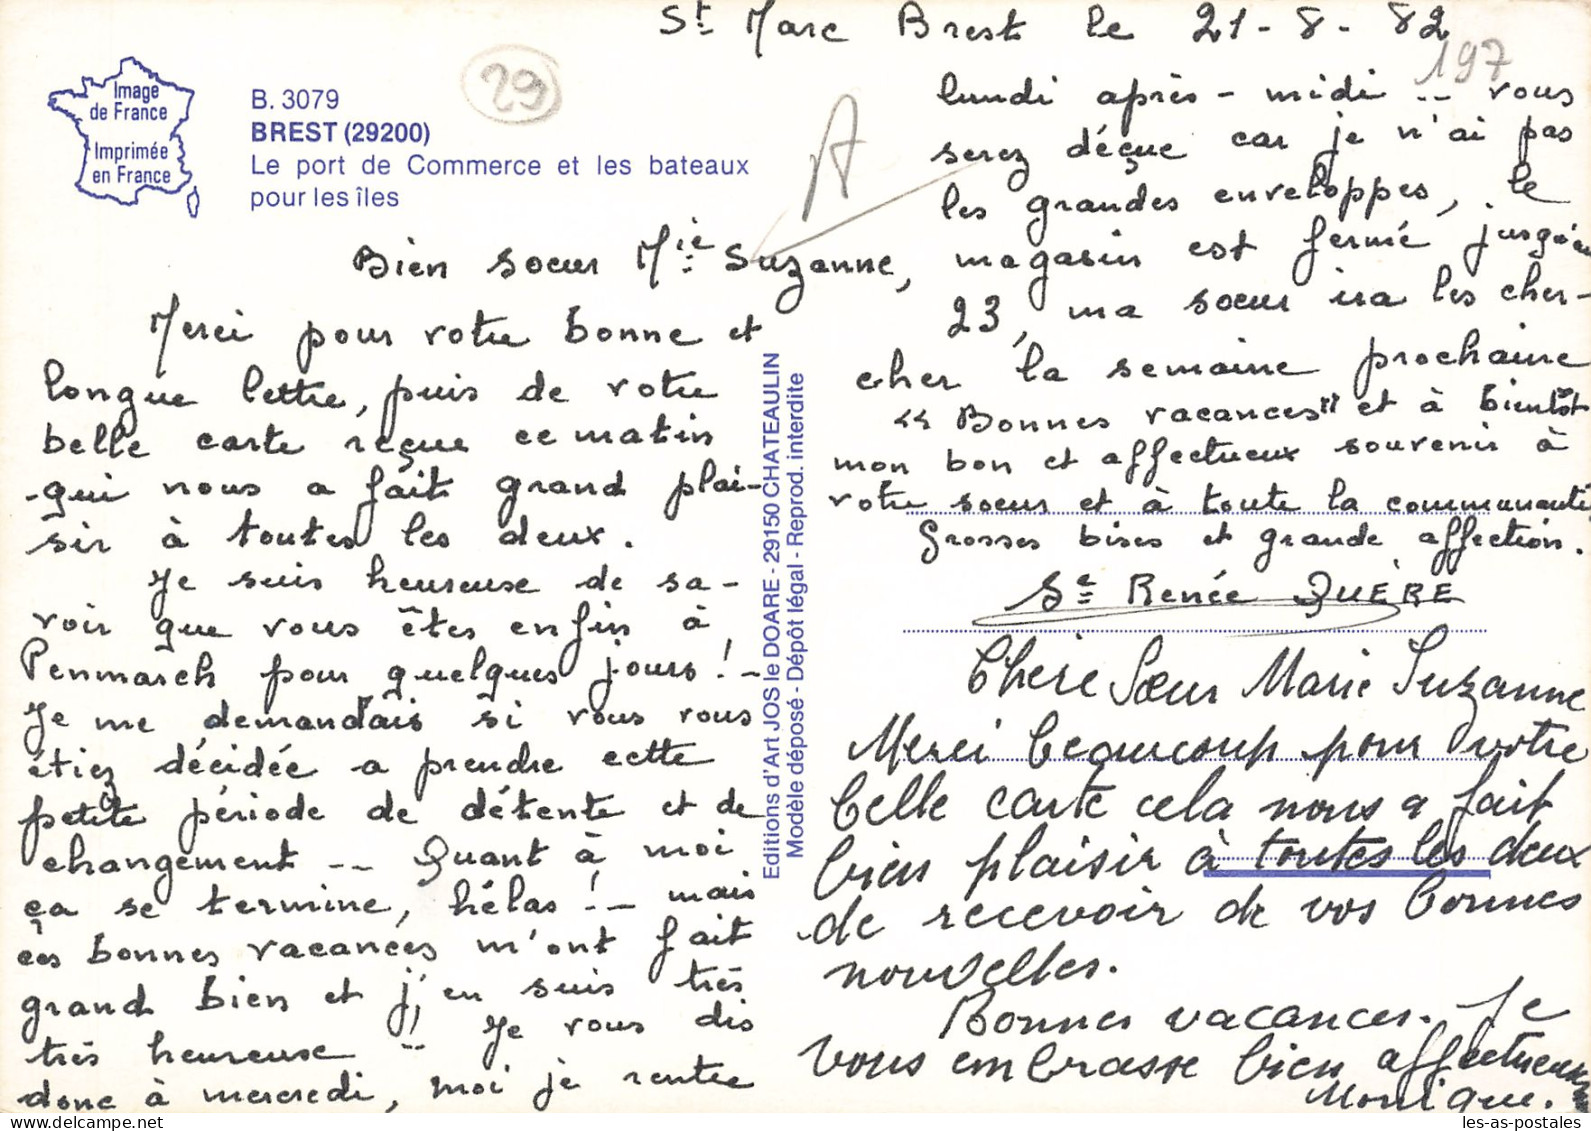 St Marc Brest le 21-8-82
197
29
A
Image
de France
Imprimée
en France
B. 3079
BREST (29200)
Le port de Commerce et les bateaux
pour les îles
Bien soeur Mie Suzanne,
Merci pour votre bonne et
longue lettre, puis de votre
belle carte reçue ce matin
qui nous a fait grand plai-
sir à toutes les deux.
Je suis heureuse de sa-
voir que vous êtes enfin à
Penmarch pour quelques jours! -
Je me demandais si vous vous
étiez décidée a prendre cette
petite période de détente et de
changement -- Quant à moi
ça se termine, hélas! -- mais
ces bonnes vacances m'ont fait
grand bien et j'en suis très
très heureuse !! Je vous dis
donc à mercredi, moi je rentre
lundi après-midi -- vous
serez déçue car je n'ai pas
les grandes enveloppes, le
magasin est fermé jusqu'au
23, ma soeur ira les cher-
cher la semaine prochaine
"Bonnes vacances" et à bientôt
mon bon et affectueux souvenir à
votre soeur et à toute la communauté
Grosses bises et grande affection.
Se Renée QUÉRÉ
Chère Sœur Marie Suzanne
Merci beaucoup pour votre
belle carte cela nous a fait
bien plaisir à toutes les deux
de recevoir de vos bonnes
nouvelles.
Bonnes vacances. Je
vous embrasse bien affectueusement
Monique.
Editions d'Art JOS le DOARE - 29150 CHATEAULIN
Modèle déposé - Dépôt légal - Reprod. interdite
les-as-postales